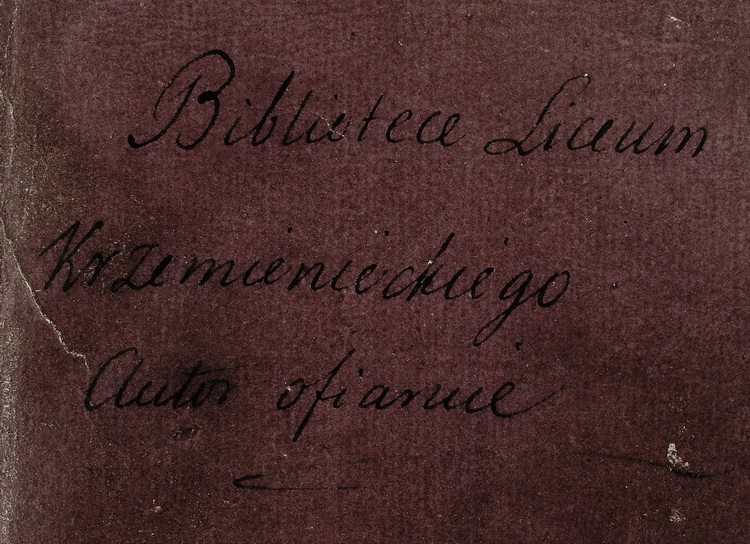 Bibliotece Liceum
Krzemienieckiego
Autor ofiaruie